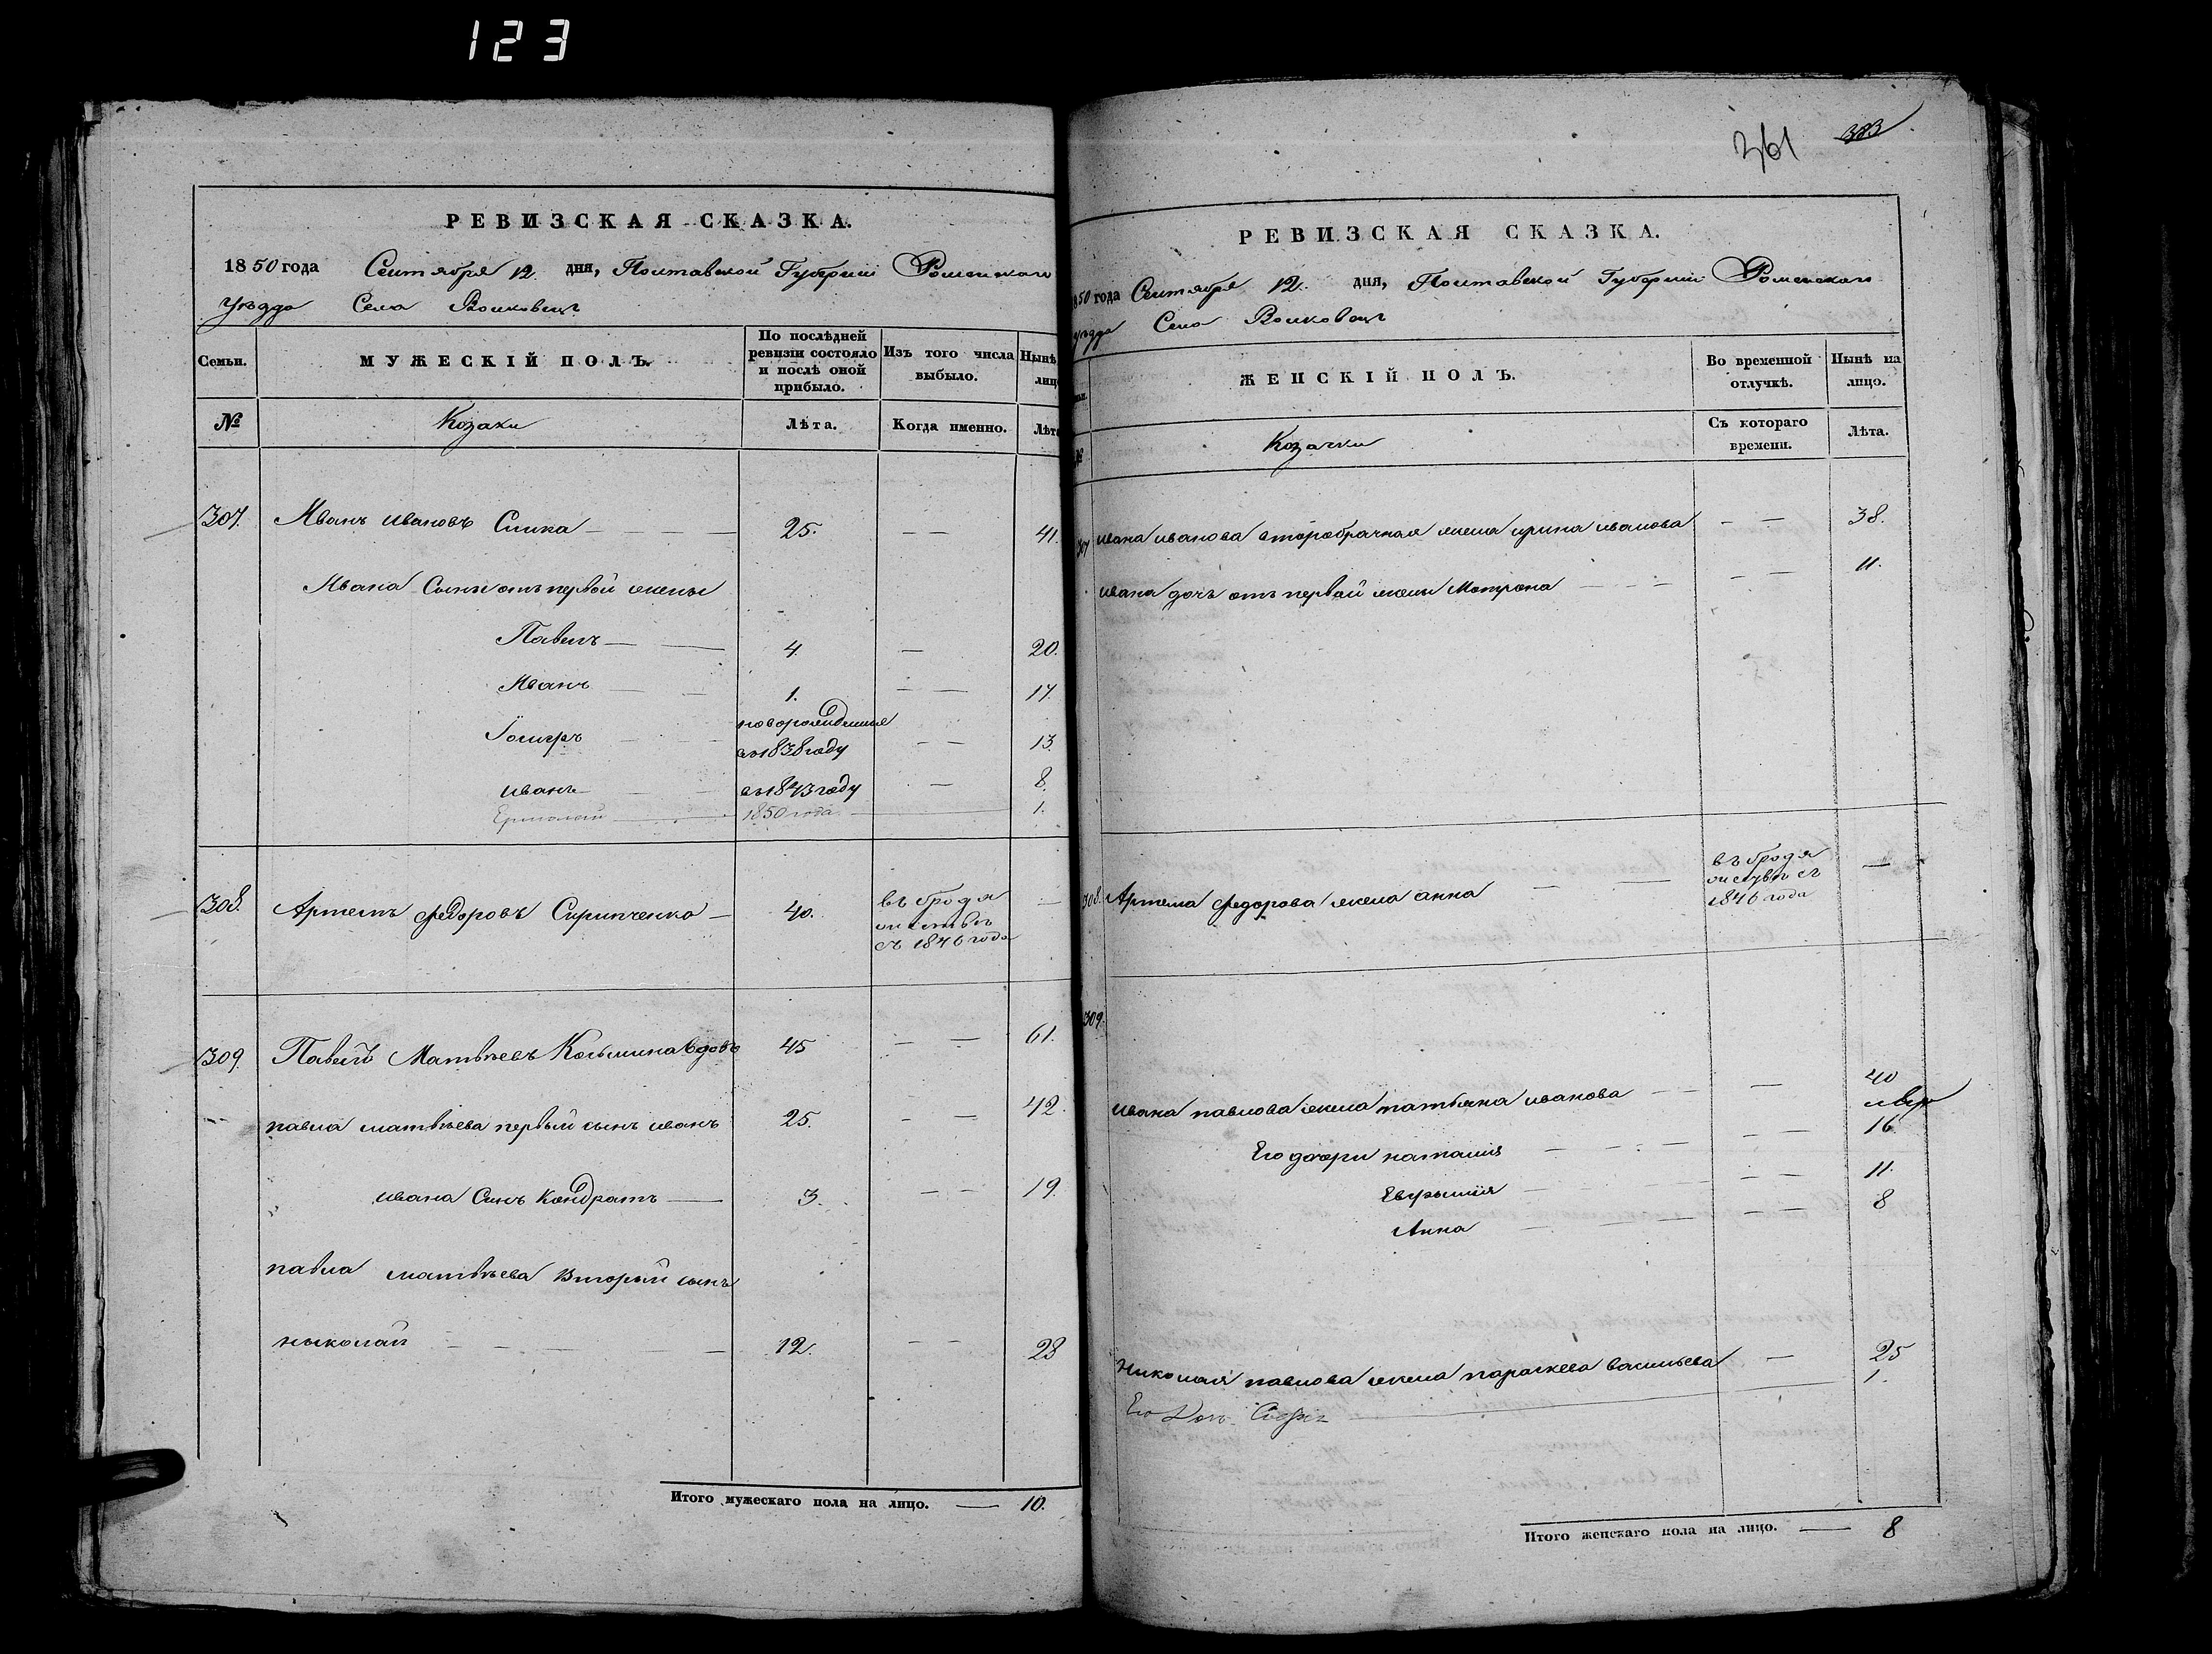 123
РЕВИЗСКАЯ СКАЗКА.
1850 года Сентября 12 дня, Полтавской Губернии Роменского
Уезда Села Волковец
Семьи. МУЖЕСКІЙ ПОЛЪ. По послѣдней ревизіи состояло и послѣ оной прибыло. Изъ того числа выбыло. Нынѣ лицо
№ Козаки Лѣта. Когда именно. Лѣта
307. Иванъ Ивановъ 25. — — 41.
Ивана Сыны отъ первой жены
Павелъ — — 4. — 20.
Иванъ — — 1. — — 17.
новорожденные
въ 1838 году — — 13.
иванъ — въ 1843 году — 8.
Ермолай 1850 года 1.
308. Артемъ Федоровъ 40. въ бродя —
с 1846 года
309. Павелъ Матвѣевъ вдовъ 45 — — 61.
павла матвѣева первый сынъ иванъ 25. — — 42.
ивана Сынъ Кондратъ — 3. — — 19.
павла матвѣева вторый сынъ
николай — — — 12. — — 28
Итого мужескаго пола на лицо. — 10.
361 383
РЕВИЗСКАЯ СКАЗКА.
1850 года Сентября 12. дня, Полтавской Губернии Роменского
Уезда Села Волковец
ЖЕНСКІЙ ПОЛЪ. Во временной отлучкѣ. Нынѣ на лицо.
№ Козачки Съ котораго времени. Лѣта.
307 ивана иванова второбрачная жена ирина иванова — — 38.
ивана дочь отъ первой жены Матрона — — 11.
308. Артема федорова жена анна — — въ бродя —
1846 года
309.
ивана павлова жена татьяна иванова — — 40
Его дочери наталия — — 16
— — 11.
Анна — — 8
Николая павлова жена параскева васильева — 25
Его Дочь 1.
Итого женскаго пола на лицо. — 8